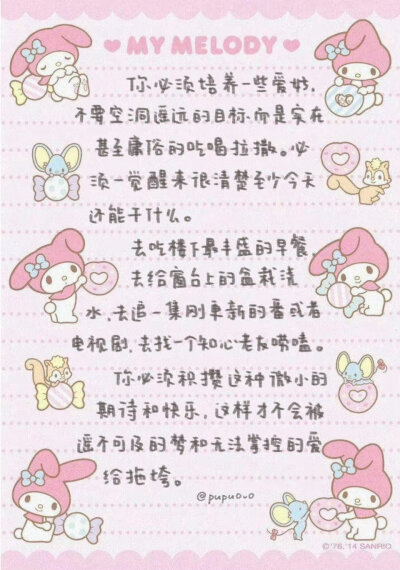 MY MELODY
你必须培养一些爱好,
不要空洞遥远的目标,而是实在
甚至庸俗的吃喝拉撒。必
须一觉醒来很清楚至少今天
还能干什么。
去吃楼下最丰盛的早餐,
去给窗台上的盆栽浇
水,去追一集刚更新的番或者
电视剧,去找一个知心老友唠嗑。
你必须积攒这种微小的
期待和快乐,这样才不会被
遥不可及的梦和无法掌控的爱
给拖垮。
@pupuovo
©'76,'14 SANRIO